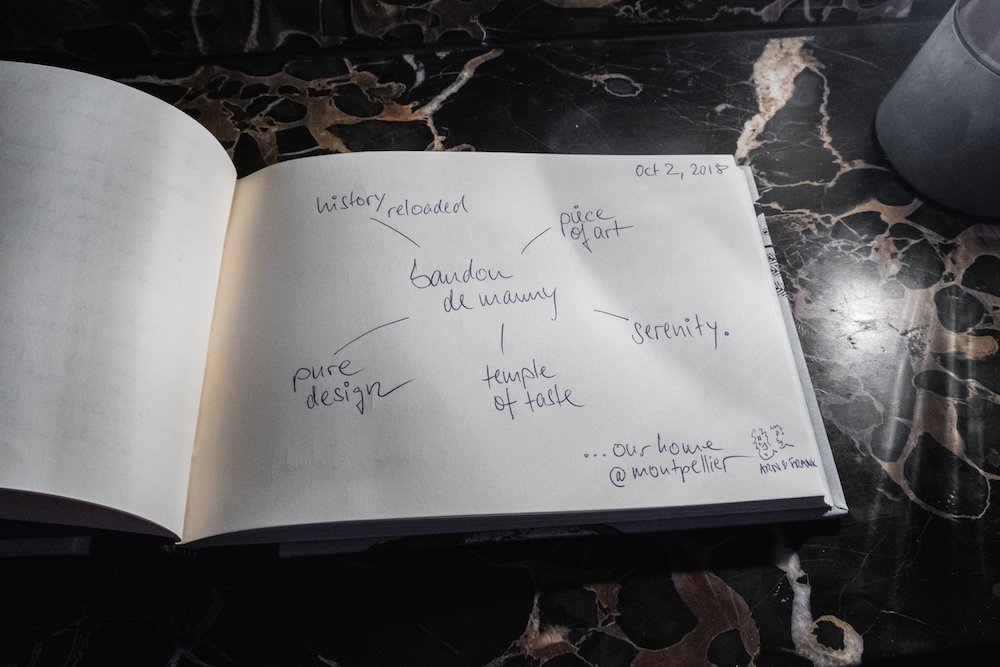 Oct 2, 2018
history reloaded
piece
of art
baudon
de mauny
serenity.
pure
design
temple
of taste
...our home
@montpellier
FRANK